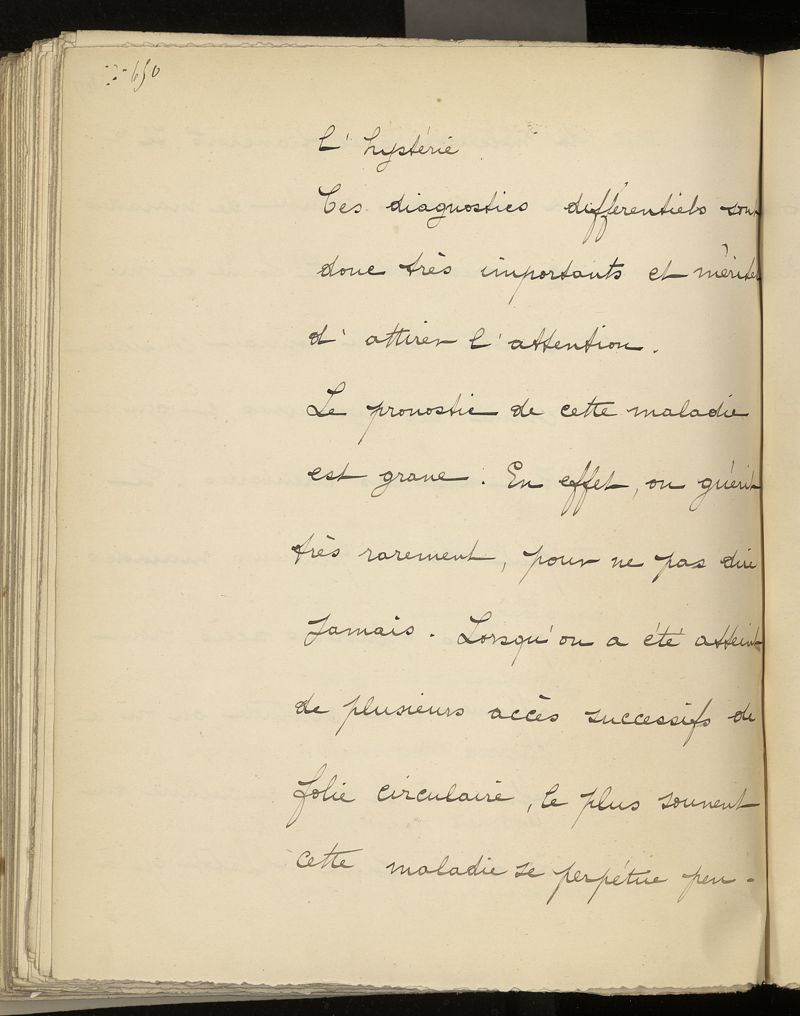 650
l'hystérie
Ces diagnostics différentiels sont
donc très importants et mérite
d'attirer l'attention.
Le pronostic de cette maladie
est grave. En effet, on guérit
très rarement, pour ne pas dire
jamais. Lorsqu'on a été atteint
de plusieurs accès successifs de
folie circulaire, le plus souvent
cette maladie se perpétue pen-